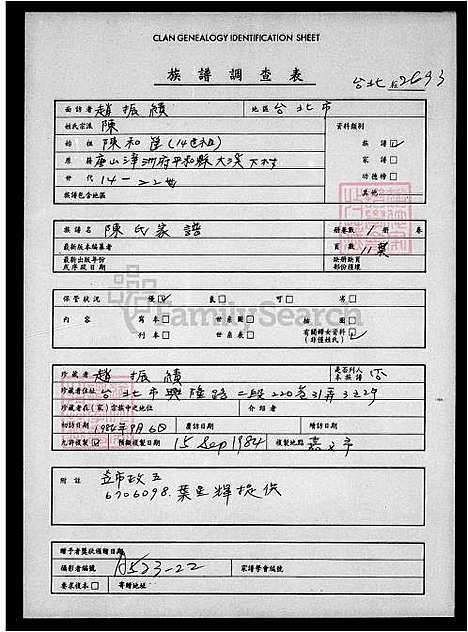 CLAN GENEALOGY IDENTIFICATION SHEET
族譜調查表
台北 2693
面訪者 趙振績 地區 台北市
姓氏宗派 陳 資料類別
始祖 陳和 (14世祖) 族譜
原籍 唐山漳洲府平和縣大溪下村 家譜
世代 14— 功德榜
族譜包含地區 其他
族譜名 陳氏家譜 冊卷數 1 冊 卷
最新版本編纂者 頁數 11葉
最新出版年份 缺冊缺頁
或序跋日期 部份殘壞
保管狀況 優 良 可 劣
內容 寫本 世系圖 插圖 有關婦女資料
刊本 世系表 (非僅姓氏)
珍藏者 趙振績 是否列入本族譜 否
珍藏者住址 台北市興隆路二段220巷31弄3之2号
珍藏者在(家)宗族中之地位 介紹者
初訪日期 1984年9月6日 覆訪日期 訪問日期
允許複製 預擬複製日期 15 Sep 1984 複製地點
附註
6706098. 葉 輝提供
贈予者獎狀頒贈日期
攝影者編號 A523-22 家譜學會編號
要求複本 寄贈地址
FamilySearch